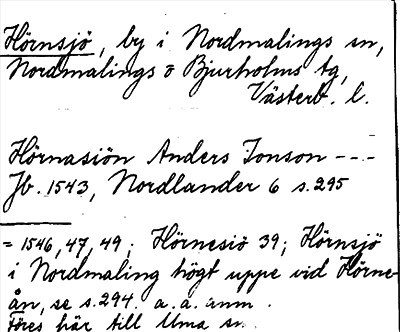 Hörnsjö, by i Nordmalings sn,
Nordmalings o Bjurholms tg,
Västerb. l.
Hörnasiön Anders Jonson ----
Jb. 1543, Nordlander 6 s. 295
= 1546, 47, 49; Hörnesiö 39; Hörnsjö
i Nordmaling högt uppe vid Hörne-
ån, se s. 294. a. a. anm.
Föres här till Uma sn.